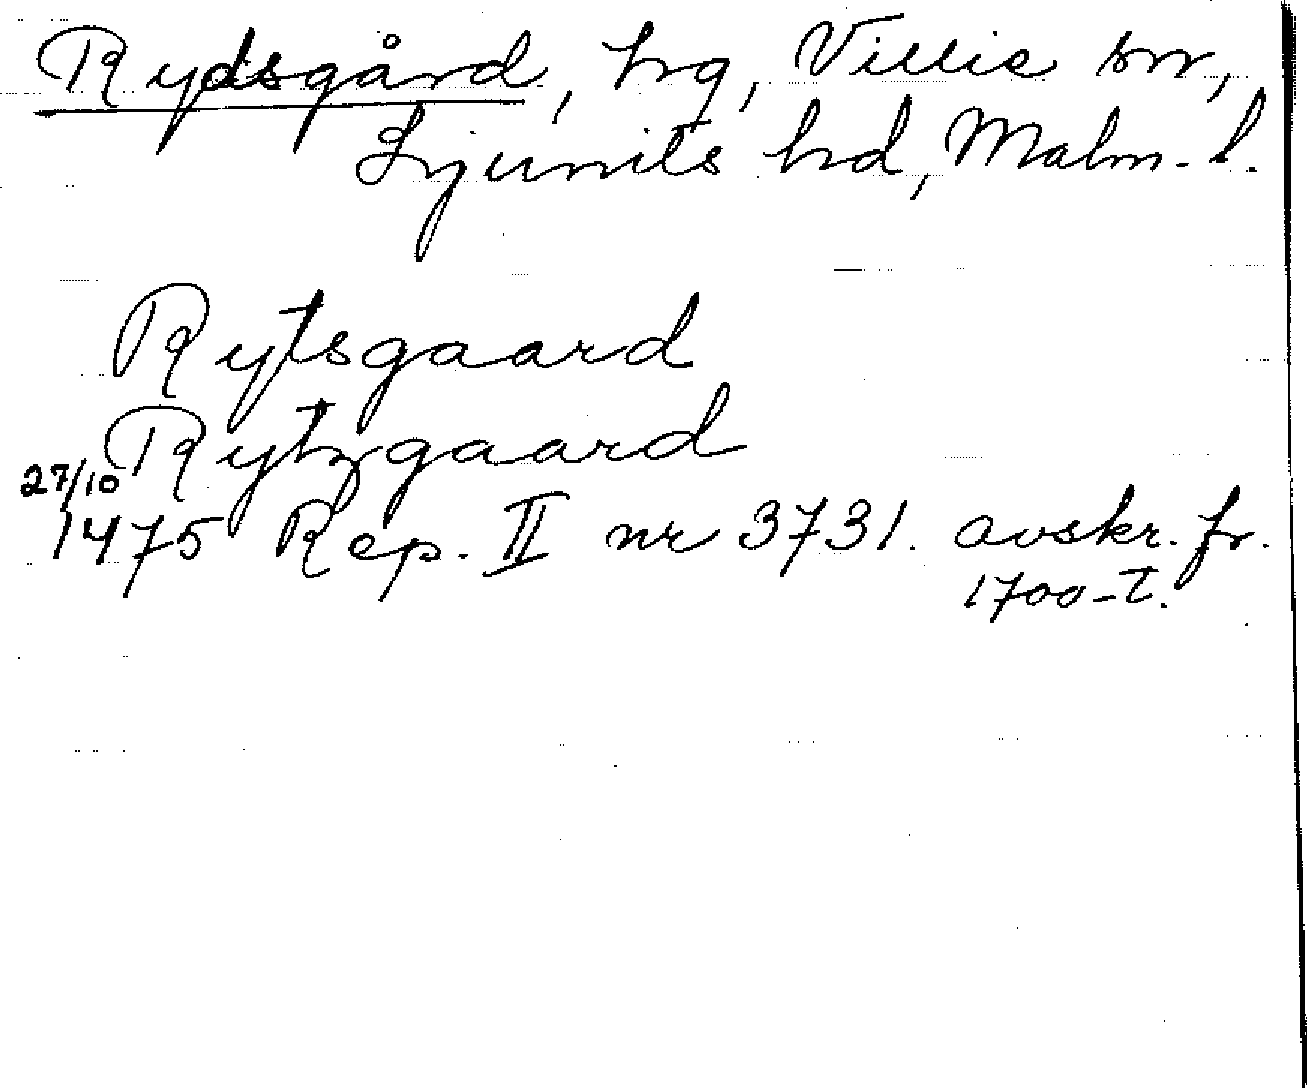 Rydsgård, hrg, Villie sn,
Ljunits hd, Malm. l.
Rytsgaard
Rytzgaard
27/10
1475 Rep. II nr 3731. avskr. fr.
1700-t.